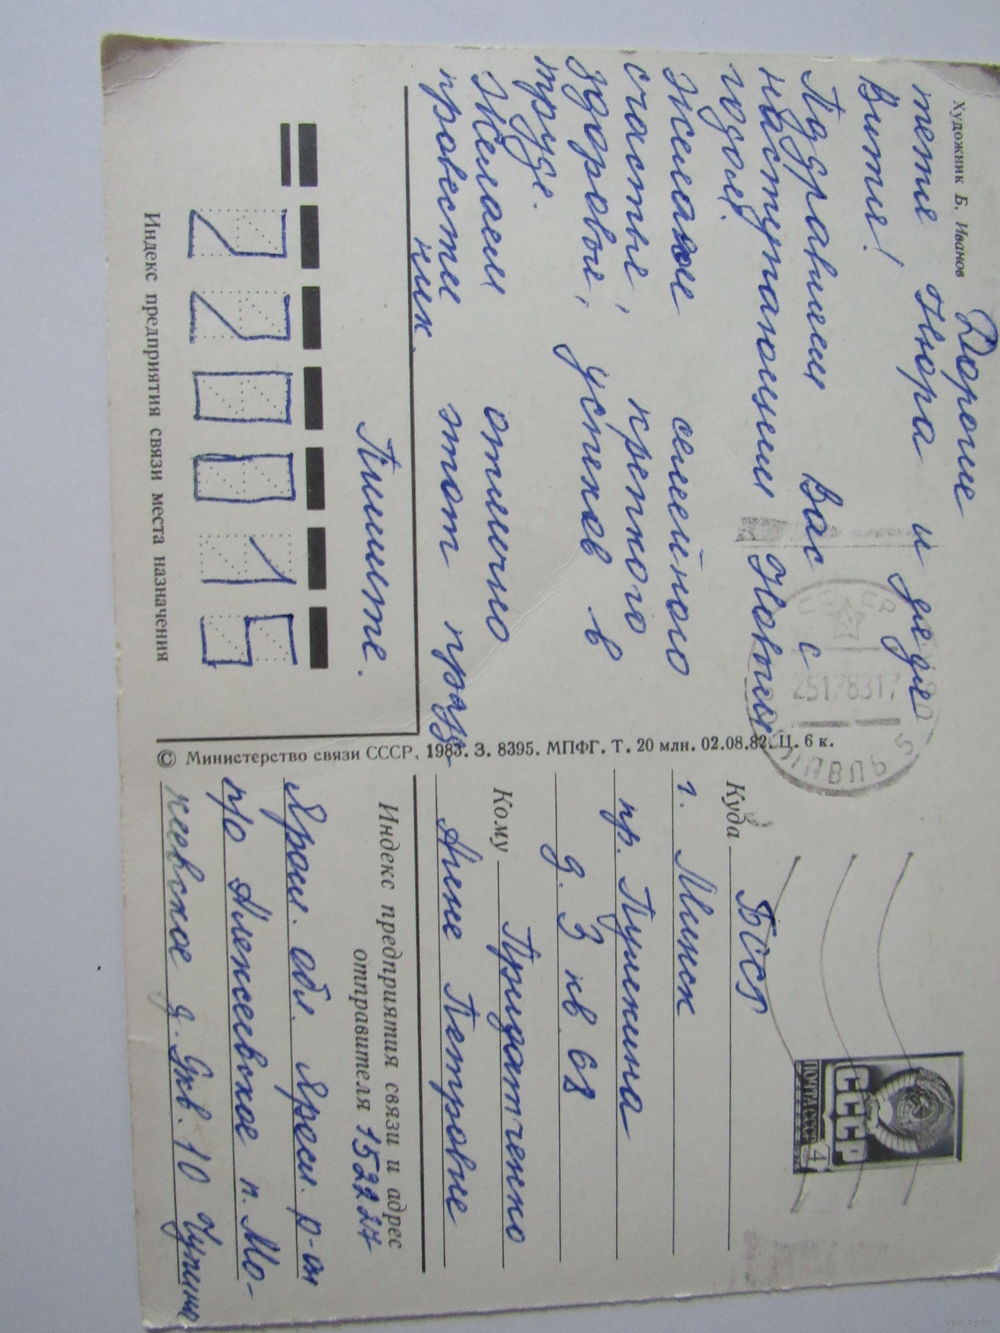 Художник Б. Иванов
Дорогие
тетя Нюра и дядя
Витя!
Поздравляем Вас с
наступающим Новым
годом!
Желаем семейного
счастья, крепкого
здоровья, успехов в
труде.
Желаем отлично
провести этот празд-
ник.
Пишите.
220015
Индекс предприятия связи места назначения
© Министерство связи СССР, 1983. З. 8395. МПФГ. Т. 20 млн. 02.08.82. Ц. 6 к.
СССР
ПОЧТА СССР
4
СССР
25128317
Куда БССР
г. Минск
пр. Пушкина
д. 3 кв. 68
Кому Придатченко
Анне Петровне
Индекс предприятия связи и адрес
отправителя 152227
Яросл. обл. Яросл. р-он
п/о Алексеевское п. Мо-
д. 9 кв. 10